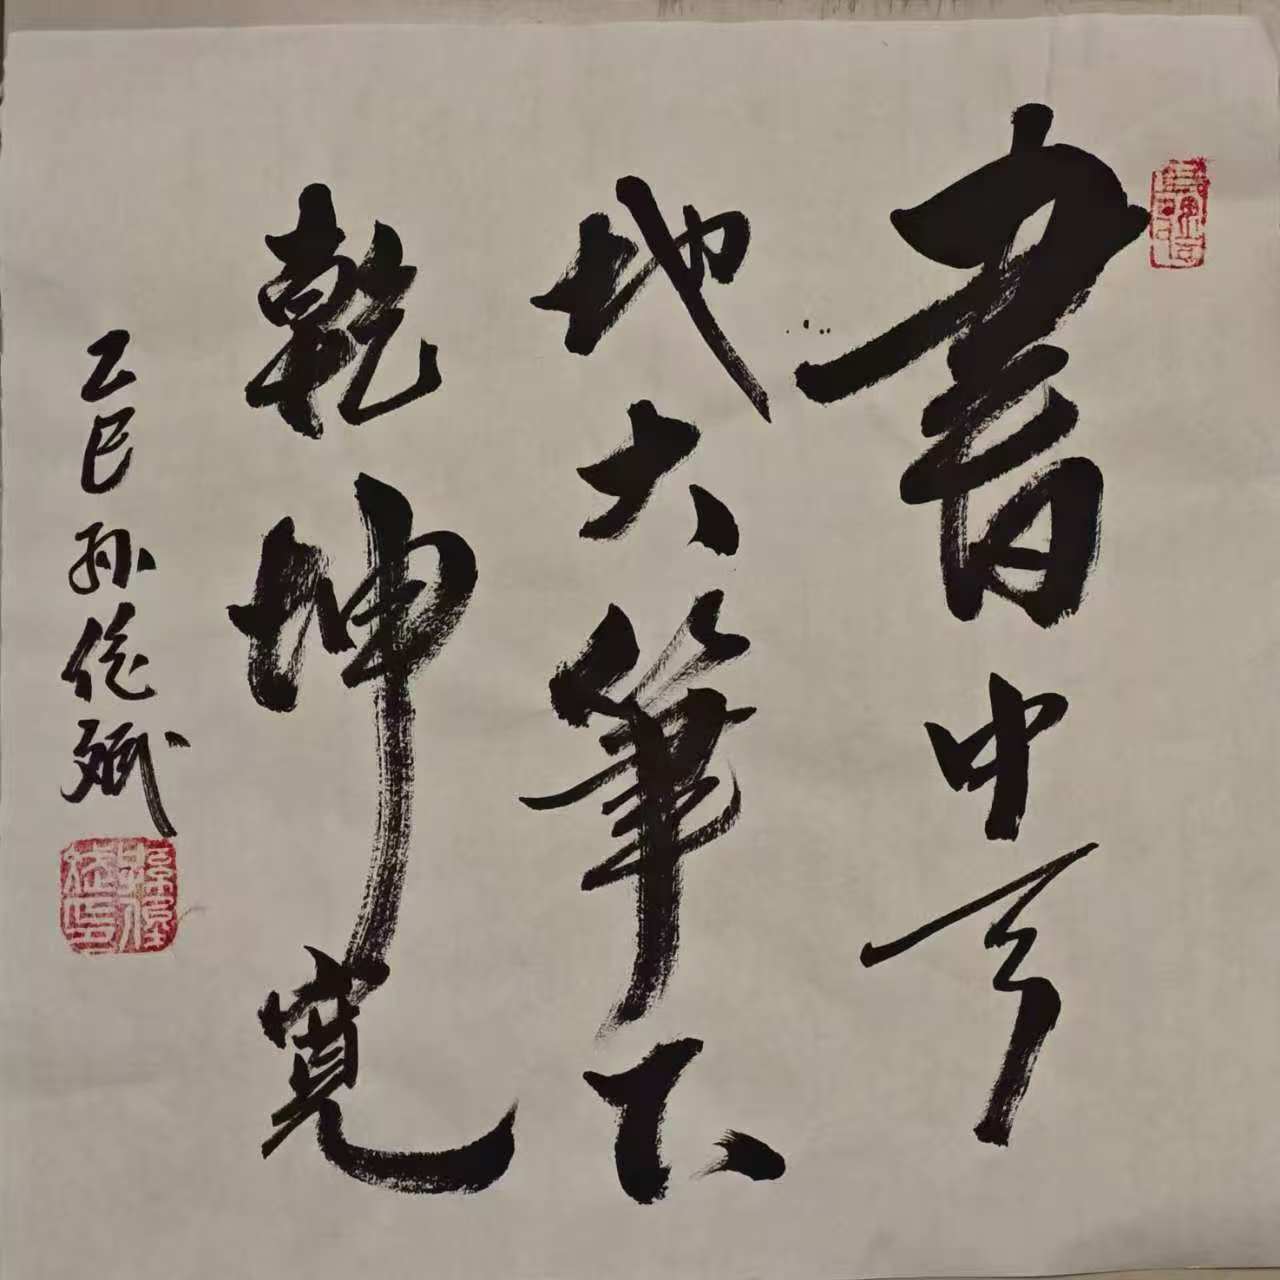 書中天
地大筆下
乾坤寬
乙巳孙俊斌